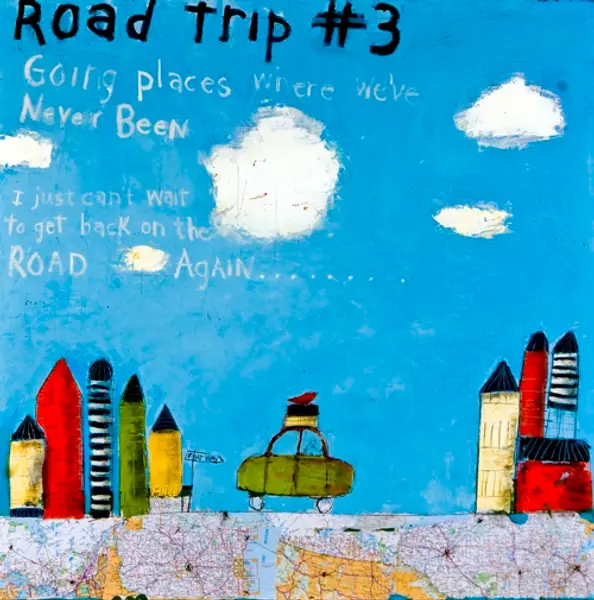 Road Trip #3
Going places where we've
Never Been
I just can't wait
to get back on the
ROAD AGAIN.........